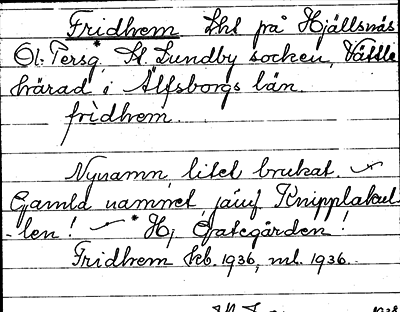 Fridhem lht på Hjällsnäs
Ol. Persg.* St. Lundby socken, Vättle
härad i Älfsborgs län.
fridhem.
Nynamn, litet brukat. ~
Gamla namnet, jämf Knipplakul-
-len! ~ * Hj Gategården!
Fridhem kb. 1936, ml. 1936.